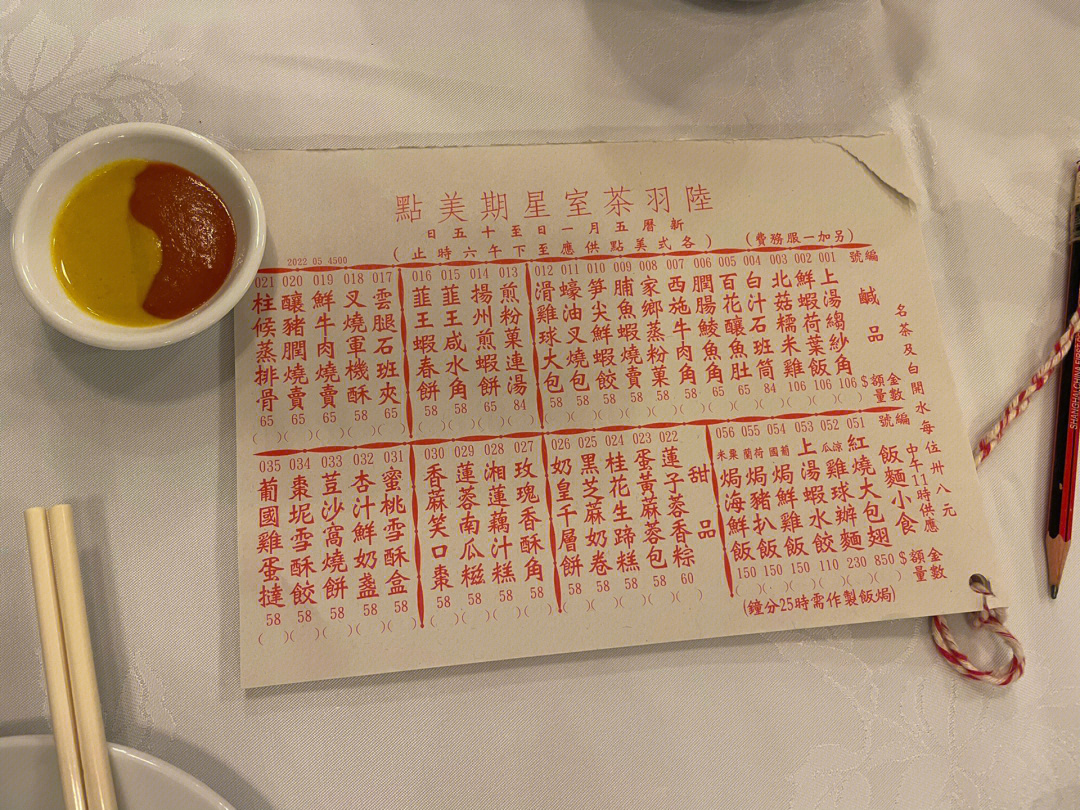 陸羽茶室星期美點
新曆五月一日至十五日
(各式美點供應至下午六時止)
(另加一服務費)
2022 05 4500
名茶及白開水每位卅八元
編號 鹹品 金額$ 數量
001 上湯縐紗角 106 ( )
002 鮮蝦荷葉飯 106 ( )
003 北菇糯米雞 106 ( )
004 白汁石班筒 84 ( )
005 百花釀魚肚 65 ( )
006 潤腸鯪魚角 65 ( )
007 西施牛肉角 58 ( )
008 家鄉蒸粉菓 58 ( )
009 脯魚蝦燒賣 58 ( )
010 笋尖鮮蝦餃 58 ( )
011 蠔油叉燒包 58 ( )
012 滑雞球大包 58 ( )
013 煎粉菓連湯 84 ( )
014 揚州煎蝦餅 65 ( )
015 韮王咸水角 58 ( )
016 韮王蝦春餅 58 ( )
017 雲腿石班夾 65 ( )
018 叉燒軍機酥 58 ( )
019 鮮牛肉燒賣 65 ( )
020 釀豬膶燒賣 65 ( )
021 柱候蒸排骨 65 ( )
編號 飯麵小食 中午11時供應 金額$ 數量
051 紅燒大包翅 850 ( )
052 涼瓜雞球辦麵 230 ( )
053 上湯蝦水餃 110 ( )
054 葡國焗鮮雞飯 150 ( )
055 荷蘭焗豬扒飯 150 ( )
056 粟米焗海鮮飯 150 ( )
(焗飯製作需時25分鐘)
甜品
022 蓮子蓉香粽 60 ( )
023 蛋黃蔴蓉包 58 ( )
024 桂花生蹄糕 58 ( )
025 黑芝蔴奶卷 58 ( )
026 奶皇千層餅 58 ( )
027 玫瑰香酥角 58 ( )
028 湘蓮藕汁糕 58 ( )
029 蓮蓉南瓜糍 58 ( )
030 香蔴笑口棗 58 ( )
031 蜜桃雪酥盒 58 ( )
032 杏汁鮮奶盞 58 ( )
033 荳沙窩燒餅 58 ( )
034 棗坭雪酥餃 58 ( )
035 葡國雞蛋撻 58 ( )